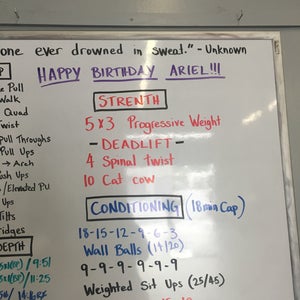 one ever drowned in sweat." - Unknown
HAPPY BIRTHDAY ARIEL!!!
Pull
Walk
Quad
Twist
Pull Throughs
Pull Ups
→ Arch
Ups
/Elevated Pu
Ups
Tilts
ridges
DEPTH
/ 9:51
/ 11:25
STRENTH
5x3 Progressive Weight
- DEADLIFT -
4 Spinal twist
10 Cat cow
CONDITIONING (18min Cap)
18-15-12-9-6-3
Wall Balls (14/20)
9-9-9-9-9-9
Weighted Sit Ups (25/45)